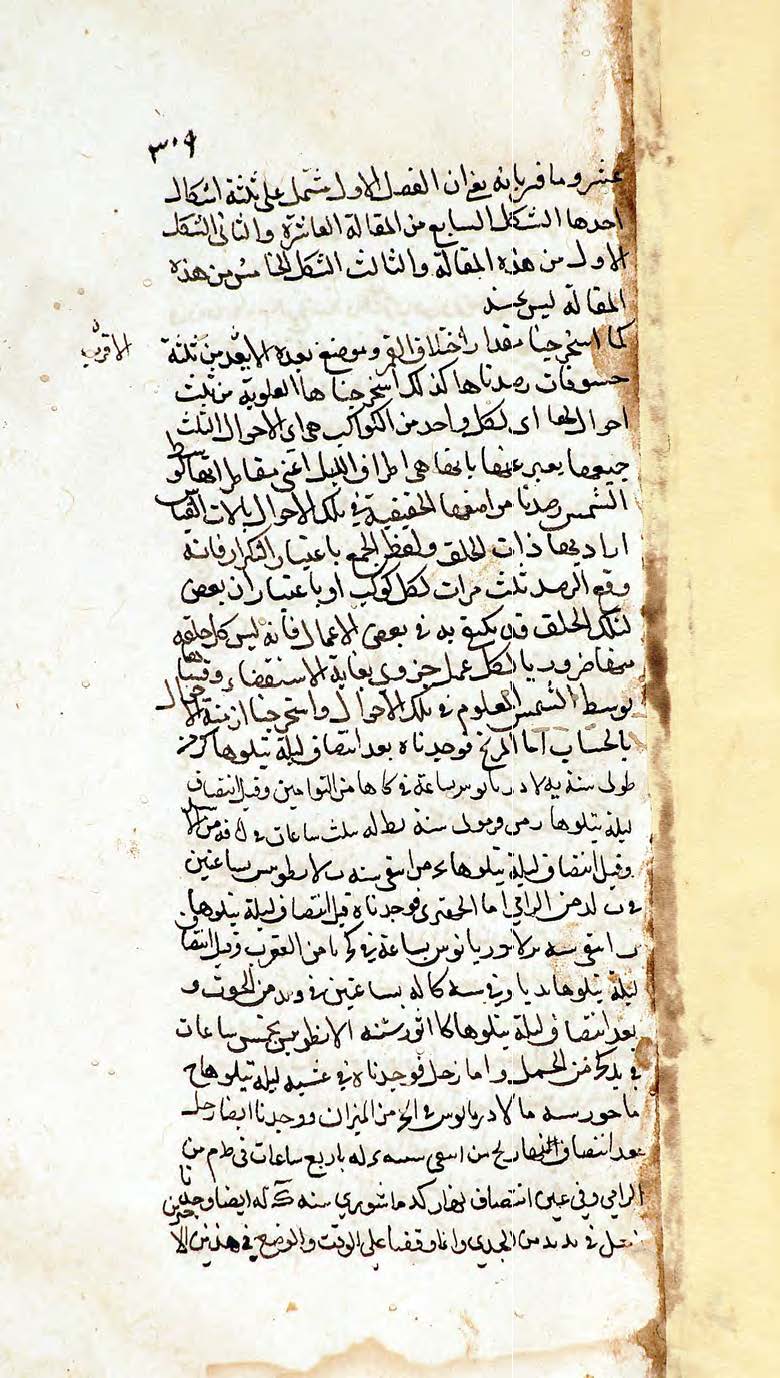 ٣٠٩
عشر وما قبل بانه يعنى ان الفصل الاول مشتمل على ثلثة اشكال
احدها الشكل السابع من المقالة العاشرة والثانى الشكل
الاول من هذه المقالة والثالث الشكل الخامس من هذه
المقالة ليس بحسن
كما استخرجنا مقدار اختلاف القمر وموضع بعده الابعد من ثلثة
الاقرب
خسوفات رصدناها كذلك استخرجنا ها العلوية من ثلث
احوال لها اى لكل واحد من الكواكب هى اى الاحوال الثلث
جميعها يعبر عنها بانها هى اطراف الليل اعنى مقاطراتها لوسط
الشمس رصدنا مواضعها الحقيقية فى تلك الاحوال بالات القياس
اراد بها ذات الحلق ولفظ الجمع باعتبار التكرار فانه
وقع الرصد ثلث مرات لكل كوكب او باعتبار ان بعض
تلك الحلق قد يكتفى به فى بعض الاعمال فانه ليس كل حلقه
منها ضروريا لكل عمل جزوى بغاية الاستقضاء وقسناها
بوسط الشمس المعلوم فى تلك الاحوال واستخرجنا ازمنة الاحوال
بالحساب اما المريخ فوجدناه بعد انتصاف ليلة يتلوها كو من
طوبى سنة يه لادريانوس ساعة فى كا ها من التوامين وقبل انتصاف
ليلة يتلوها فرموثى سنة يط له بثلث ساعات فى من الاسد
وقبل انتصاف ليلة يتلوها من ابيفى سنه ب لانطونينس بساعتين
فى ب لد من الرامى اما المشترى فوجدناه قبل انتصاف ليلة يتلوها من
ابيفى سنه لادوريانوس بساعة فى كج يا من العقرب وقبل انتصاف
ليلة يتلوها يد باوفى سنه كا له بساعتين فى و ند من الحوت و
بعد انتصاف ليلة يتلوها كا اثور سنه ا لانطونينس بخمس ساعات
فى يد كج من الحمل واما زحل فوجدناه فى عشيه ليلة يتلوها ح
ماحور سنه ما لادريانوس فى ا يج من الميزان ووجدنا ايضا زحل
بعد انتصاف النهار يح من ابيفى سنه له باربع ساعات فى ط م من
الرامى وفى عين انتصاف نهار كد ماشورى سنه ك له ايضا وجدنا
زحل فى يد يد من الجدى وانما وقفنا على الوقت والوضع فى هذين الاخيرين